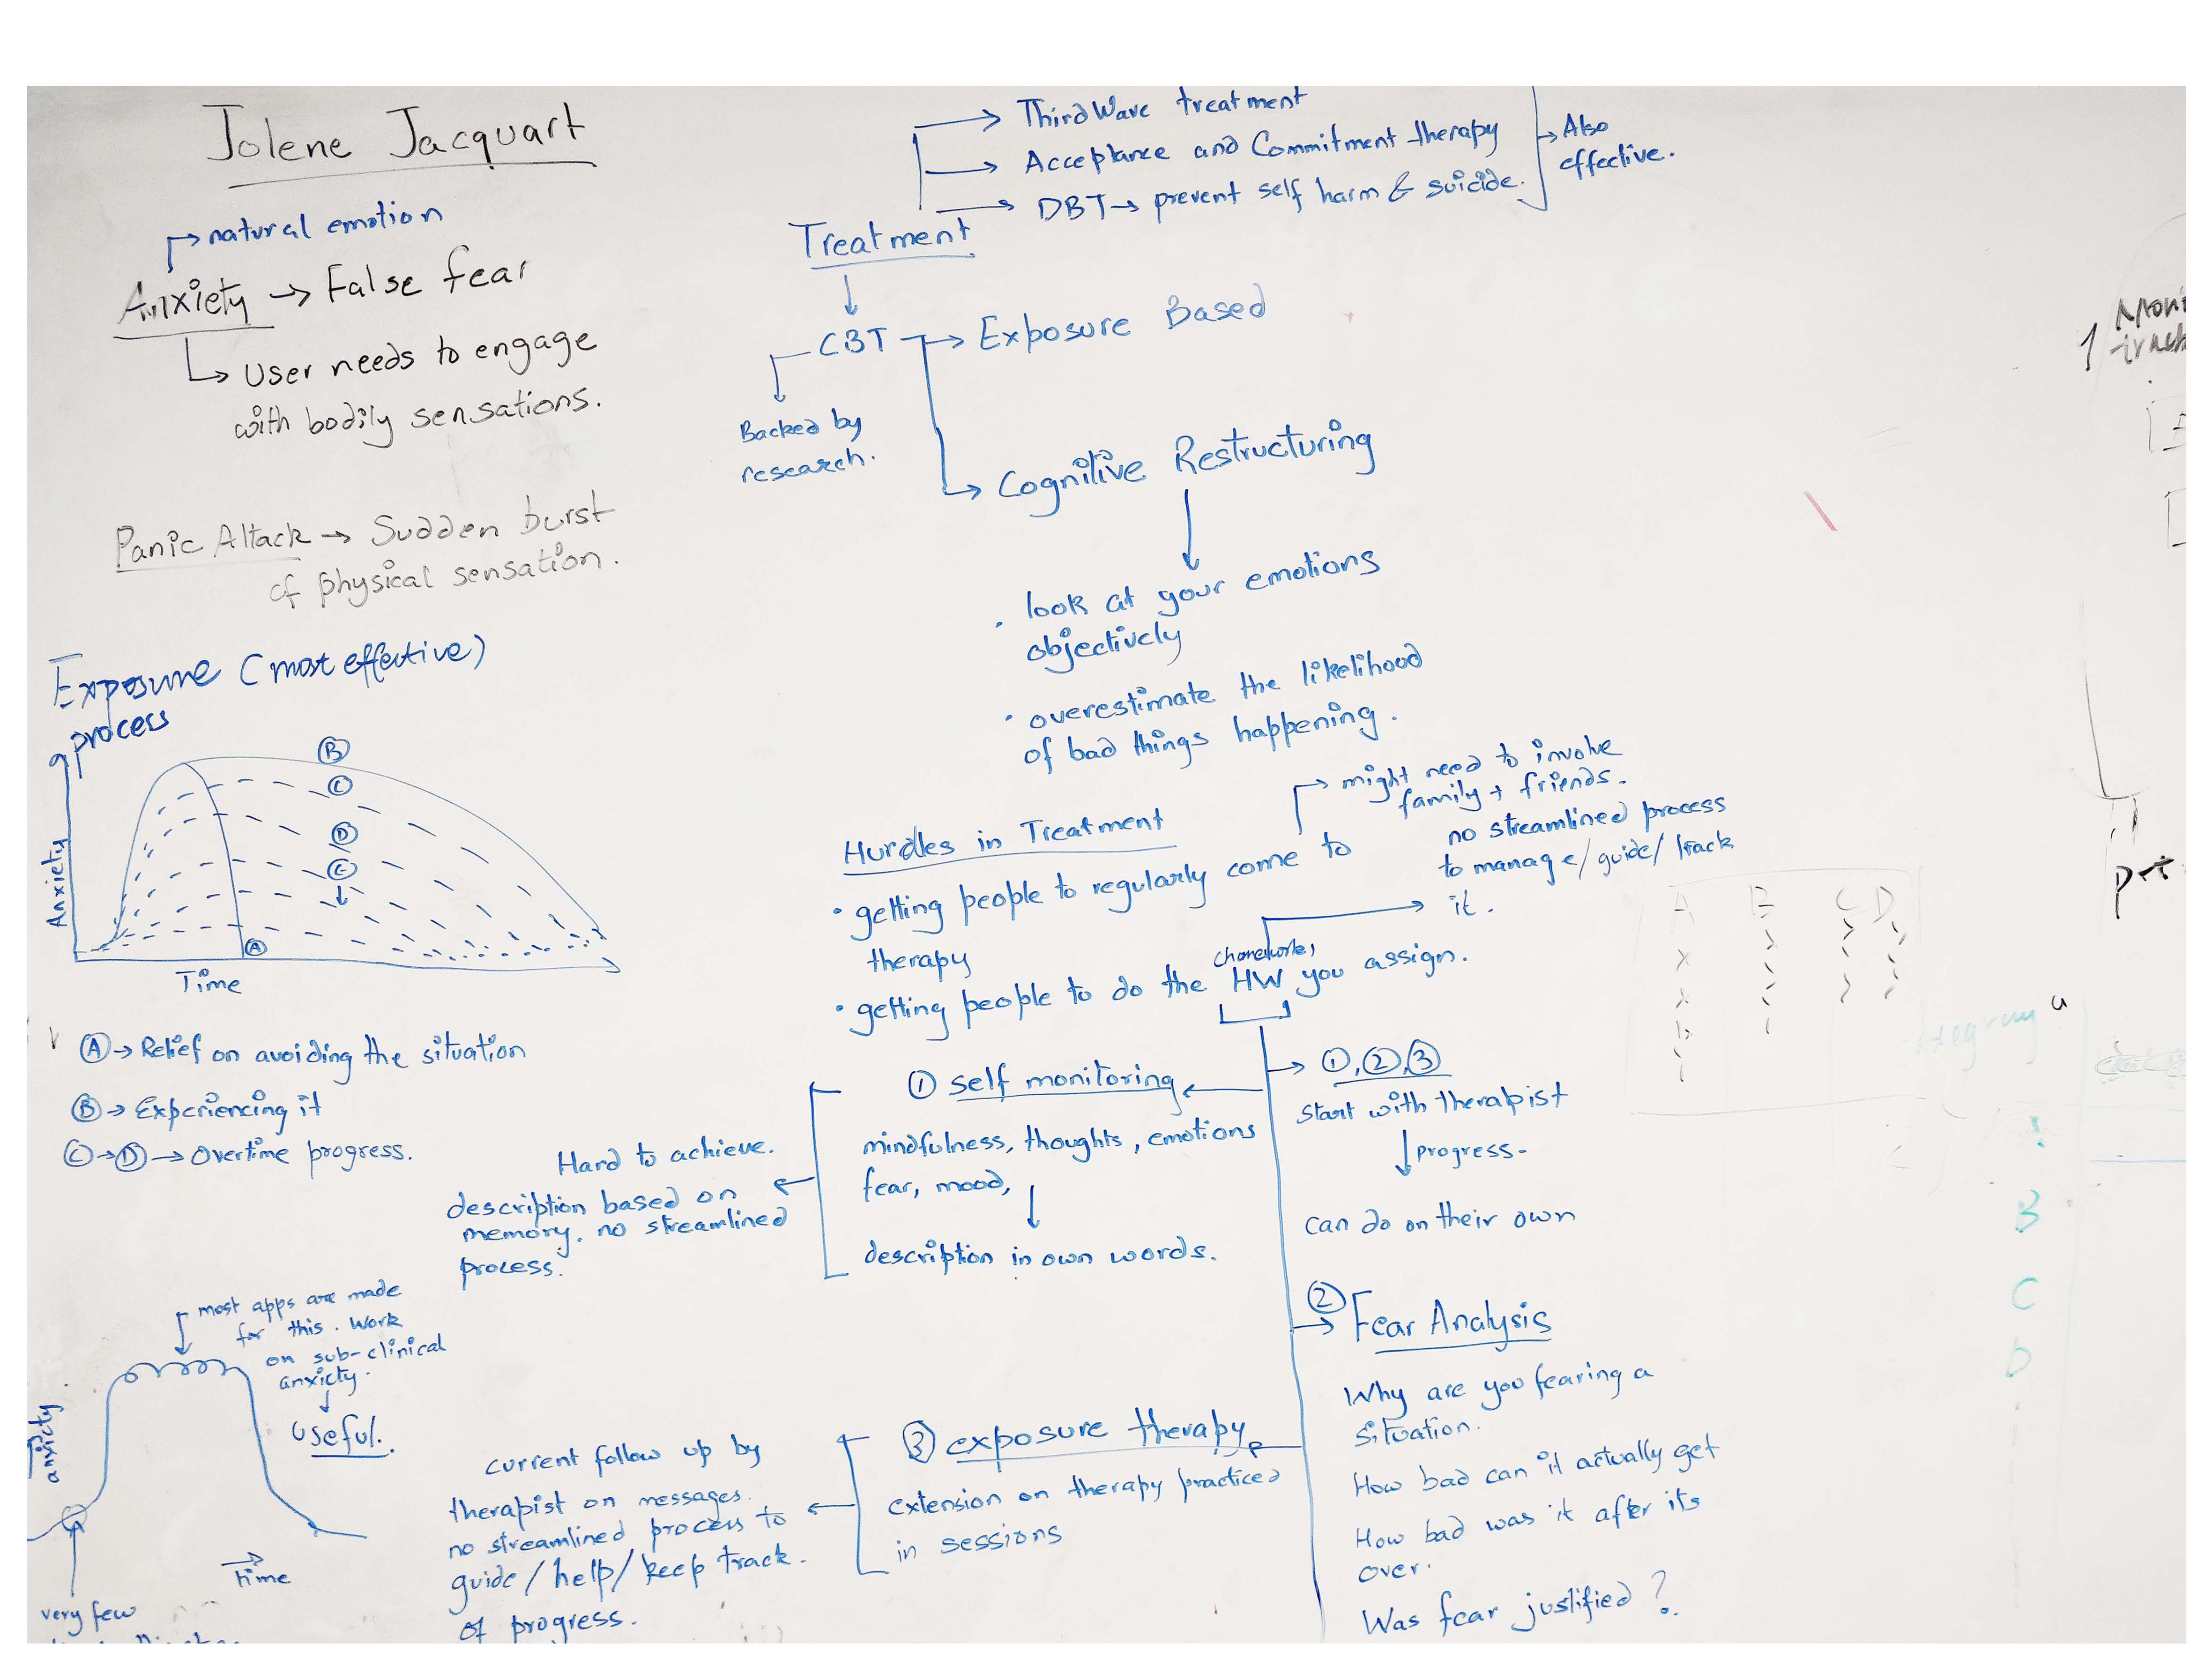 Jolene Jacquart
natural emotion
Anxiety → False fear
User needs to engage
with bodily sensations.
Panic Attack → Sudden burst
of physical sensation.
Exposure (most effective)
process
B
C
D
C
A
Anxiety
Time
A → Relief on avoiding the situation
B → Experiencing it
C → D → Overtime progress.
most apps are made
for this. Work
on sub-clinical
anxiety.
Useful.
anxiety
time
very few
Third Wave treatment
Acceptance and Commitment therapy
DBT → prevent self harm & suicide.
Also
effective.
Treatment
CBT → Exposure Based
Backed by
research.
Cognitive Restructuring
• look at your emotions
objectively
• overestimate the likelihood
of bad things happening.
Hurdles in Treatment
• getting people to regularly come to
therapy
might need to involve
family + friends.
• getting people to do the HW you assign.
(homework)
no streamlined process
to manage/guide/track
it.
① self monitoring
mindfulness, thoughts, emotions
fear, mood,
description in own words.
Hard to achieve.
description based on
memory. no streamlined
process.
①, ②, ③
start with therapist
progress-
can do on their own
② Fear Analysis
Why are you fearing a
situation.
How bad can it actually get
How bad was it after its
over.
Was fear justified?
③ exposure therapy
extension on therapy practiced
in sessions
current follow up by
therapist on messages.
no streamlined process to
guide/help/keep track.
of progress.
A B C D
B
C
D